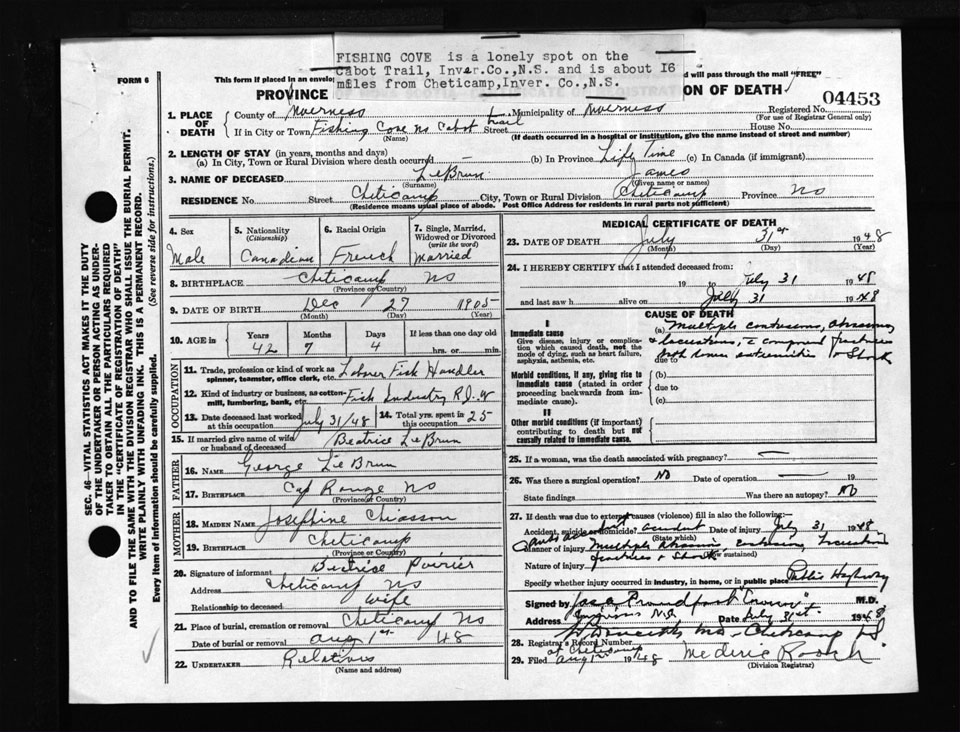 FISHING COVE is a lonely spot on the
Cabot Trail, Inver.Co.,N.S. and is about 16
miles from Cheticamp,Inver. Co.,N.S.
FORM 6
This form if placed in an envelop
ed will pass through the mail "FREE"
PROVINCE
ON OF DEATH
04453
1. PLACE OF DEATH
County of Inverness Municipality of Inverness Registered No.
(For use of Registrar General only)
If in City or Town Fishing Cove NS Cabot Trail Street House No.
(Name) (If death occurred in a hospital or institution, give the name instead of street and number)
2. LENGTH OF STAY (in years, months and days)
(a) In City, Town or Rural Division where death occurred — (b) In Province Life Time (c) In Canada (if immigrant)
3. NAME OF DECEASED LeBrun James
(Surname) (Given name or names)
RESIDENCE No. Cheticamp Street City, Town or Rural Division Cheticamp Province NS
(Residence means usual place of abode. Post Office Address for residents in rural parts not sufficient)
4. Sex Male
5. Nationality (Citizenship) Canadian
6. Racial Origin French
7. Single, Married, Widowed or Divorced (write the word) Married
8. BIRTHPLACE Cheticamp NS
(Province or Country)
9. DATE OF BIRTH Dec 27 1905
(Month) (Day) (Year)
10. AGE in Years Months Days If less than one day old
42 7 4 hrs. or min.
OCCUPATION
11. Trade, profession or kind of work as
spinner, teamster, office clerk, etc. Labor Fish Handler
12. Kind of industry or business, as cotton-
mill, lumbering, bank, etc. Fish Industry
13. Date deceased last worked
at this occupation July 31/48
14. Total yrs. spent in
this occupation 25
15. If married give name of wife
or husband of deceased Beatrice LeBrun
FATHER
16. NAME George LeBrun
17. BIRTHPLACE Cap Rouge NS
(Province or Country)
MOTHER
18. MAIDEN NAME Josephine Chiasson
19. BIRTHPLACE Cheticamp
(Province or Country)
20. Signature of informant Beatrice Poirier
Address Cheticamp NS
Relationship to deceased wife
21. Place of burial, cremation or removal Cheticamp NS
Date of burial or removal Aug 1st 48
22. UNDERTAKER Relatives
(Name and address)
MEDICAL CERTIFICATE OF DEATH
23. DATE OF DEATH July 31st 1948
(Month) (Day) (Year)
24. I HEREBY CERTIFY that I attended deceased from:
19 to July 31 1948
and last saw h alive on July 31 1948
CAUSE OF DEATH
I
Immediate cause
Give disease, injury or complica-
tion which caused death, not the
mode of dying, such as heart failure,
asphyxia, asthenia, etc.
(a) Multiple contusions, abrasions
& lacerations, c compound fractures
both lower extremities & Shock
due to
Morbid conditions, if any, giving rise to
immediate cause (stated in order
proceeding backwards from im-
mediate cause).
(b)
due to
(c)
II
Other morbid conditions (if important)
contributing to death but not
causally related to immediate cause.
25. If a woman, was the death associated with pregnancy? —
26. Was there a surgical operation? No Date of operation — 19
State findings Was there an autopsy? No
27. If death was due to external causes (violence) fill in also the following:—
Accident, suicide or homicide? accident Date of injury July 31 1948
(State which)
Manner of injury Multiple abrasions contusions, lacerations
(How sustained)
Nature of injury fractures & Shock
Specify whether injury occurred in industry, in home, or in public place Public Highway
Signed by Proudfoot "Coroner" M.D.
Address Inverness N.S. Date July 31st 1948
Cheticamp NS
28. Registrar's Record Number
at Cheticamp
29. Filed Aug 1st 1948 Mederic Roach
(Division Registrar)
SEC. 46—VITAL STATISTICS ACT MAKES IT THE DUTY
OF THE UNDERTAKER OR PERSON ACTING AS UNDER-
TAKER TO OBTAIN ALL THE PARTICULARS REQUIRED
IN THE "CERTIFICATE OF REGISTRATION OF DEATH"
AND TO FILE THE SAME WITH THE DIVISION REGISTRAR WHO SHALL ISSUE THE BURIAL PERMIT.
WRITE PLAINLY WITH UNFADING INK. THIS IS A PERMANENT RECORD.
Every item of information should be carefully supplied. (See reverse side for instructions.)